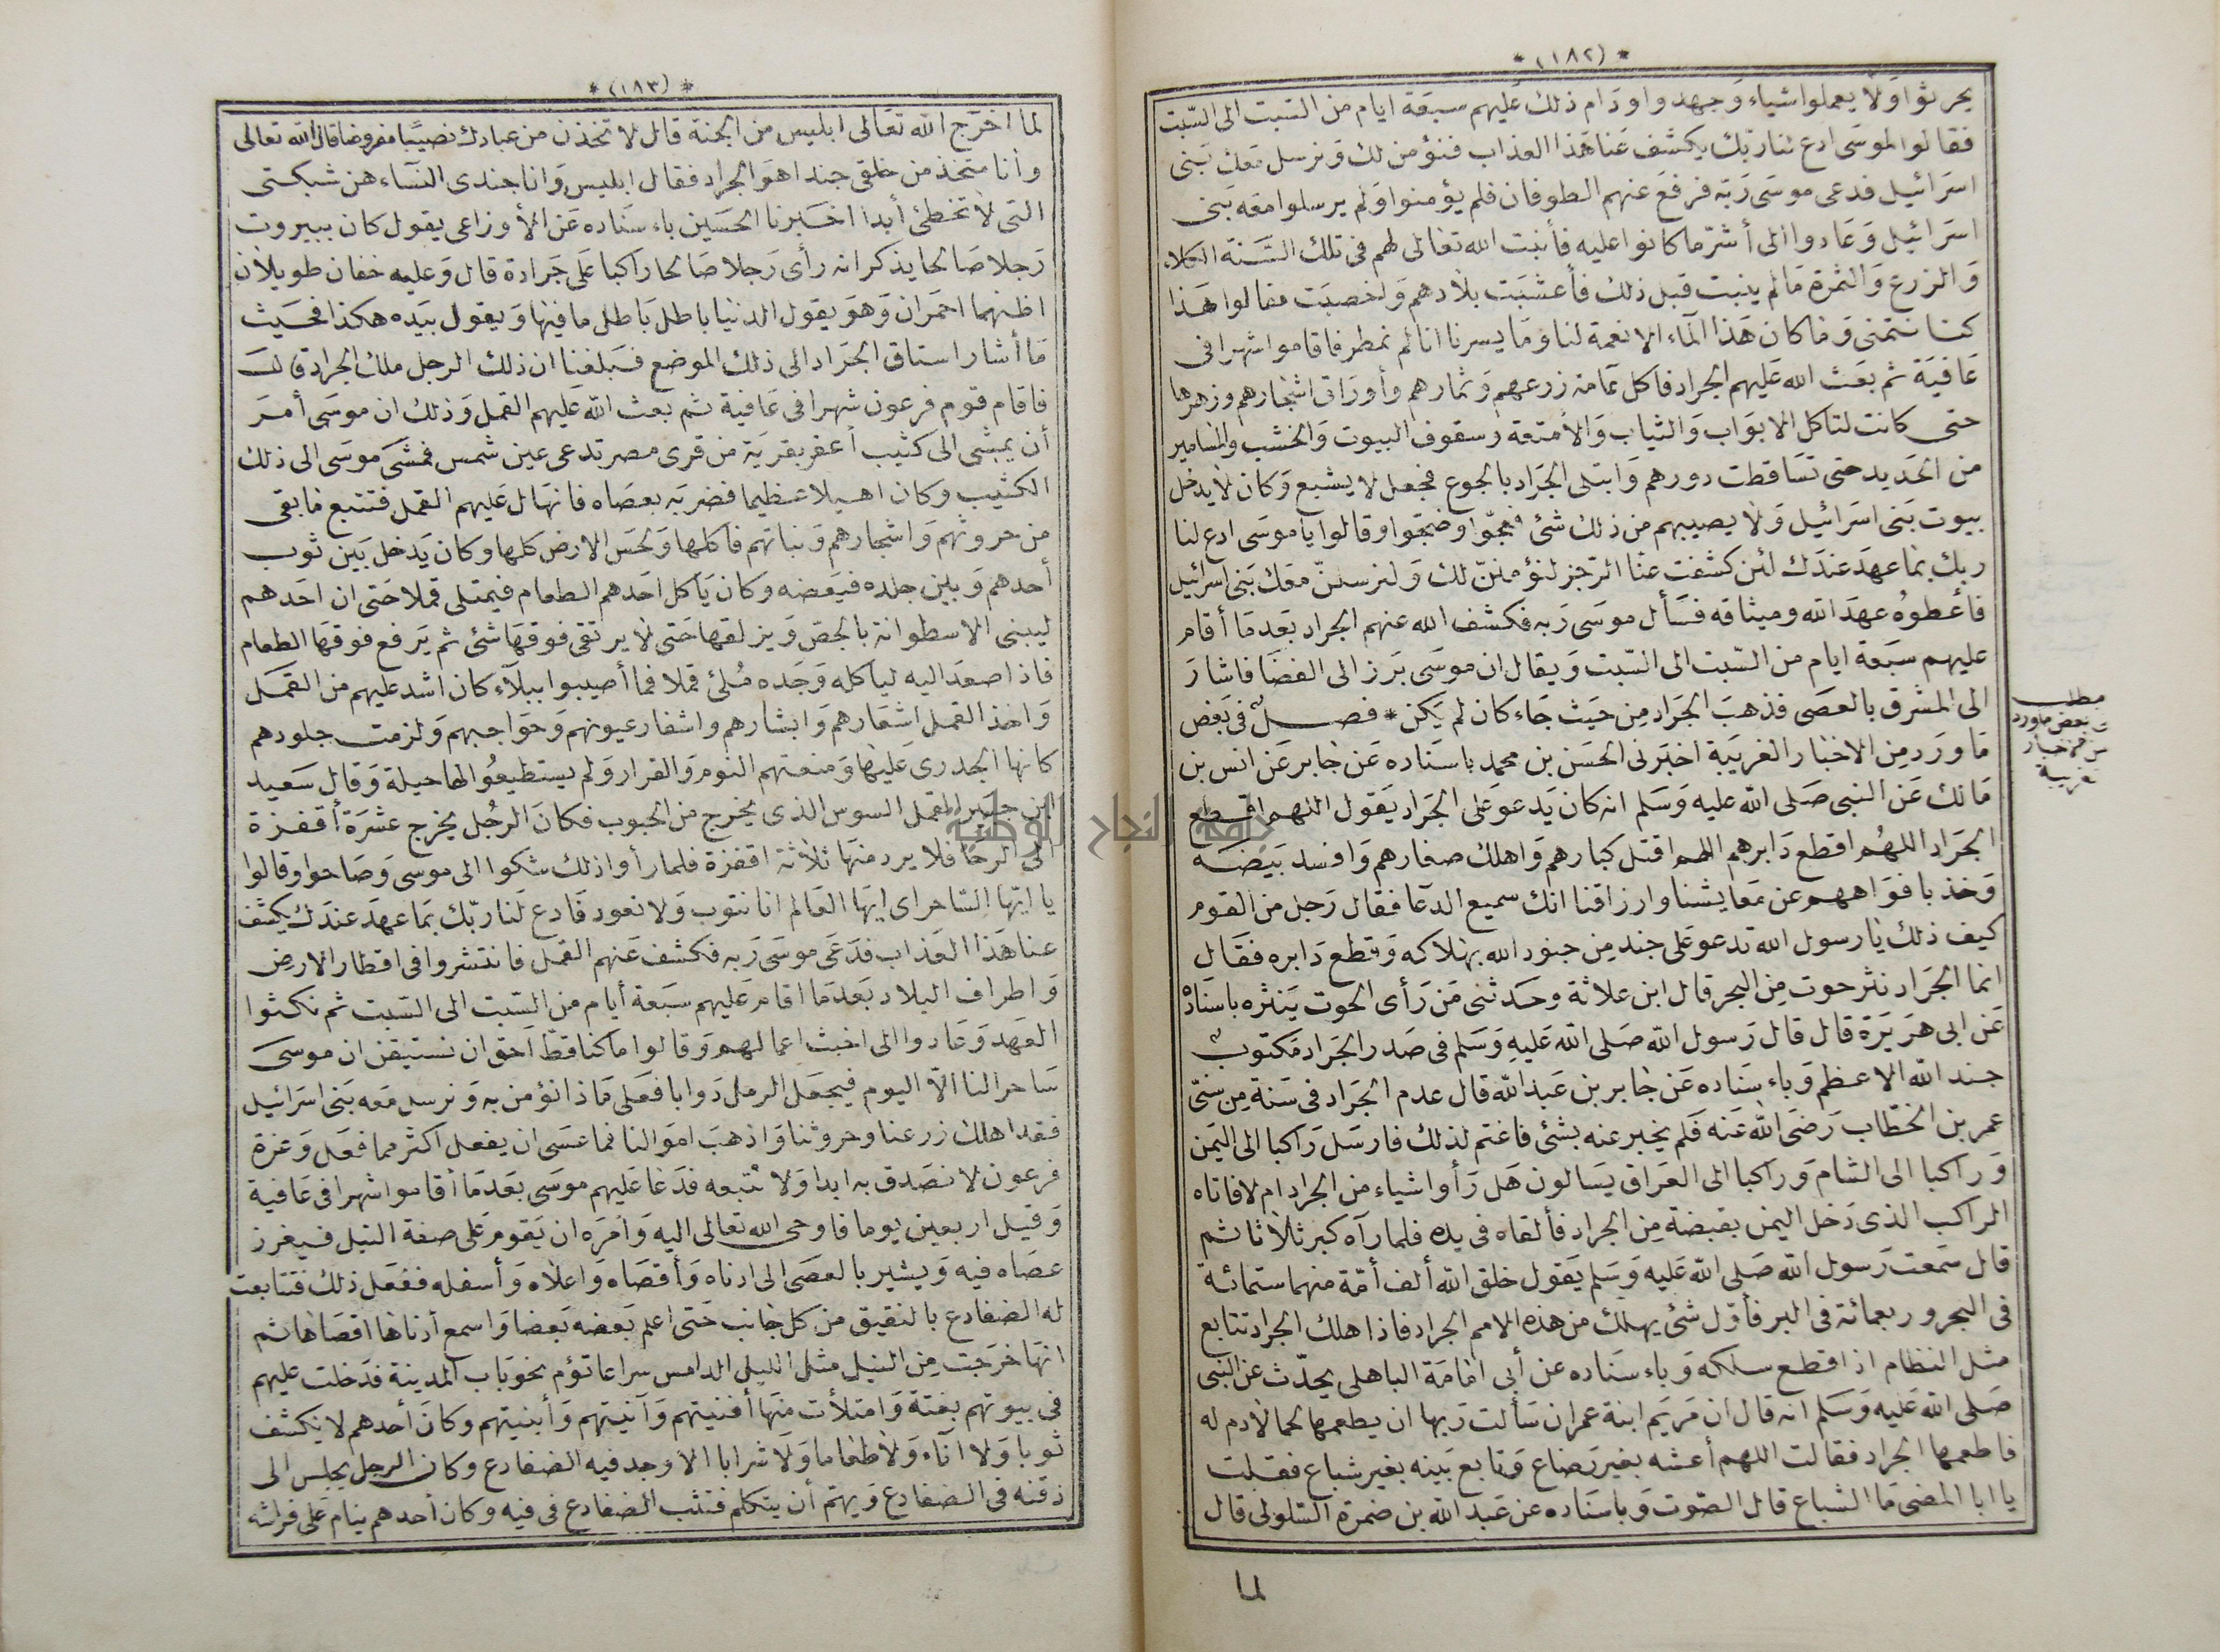 *(١٨٢)*
يحرثوا ولا يعملوا شياء وجهدوا ودام ذلك عليهم سبعة ايام من السبت الى السبت
فقالوا لموسى ادع لنا ربك يكشف عنا هذا العذاب فنؤمن لك ونرسل معك بنى
اسرائيل فدعى موسى ربه فرفع عنهم الطوفان فلم يؤمنوا ولم يرسلوا معه بنى
اسرائيل وعادوا الى أشر ما كانوا عليه فأنبت الله تعالى لهم فى تلك السنة الكلاء
والزرع والثمرة مالم ينبت قبل ذلك فأعشبت بلادهم واخصبت فقالوا هذا
كنا نتمنى وما كان هذا الماء الا نعمة لنا وما يسرنا انا لم نمطر فاقاموا شهرا فى
عافية ثم بعث الله عليهم الجراد فاكل عامة زرعهم وثمارهم وأوراق اشجارهم وزهرها
حتى كانت لتاكل الابواب والثياب والأمتعة وسقوف البيوت والخشب والمسامير
من الحديد حتى تساقطت دورهم وابتلى الجراد بالجوع فجعل لا يشبع وكان لا يدخل
بيوت بنى اسرائيل ولا يصيبهم من ذلك شئ فعجوا وضجوا وقالوا يا موسى ادع لنا
ربك بما عهد عندك لئن كشفت عنا الرجز لنؤمنن لك ولنرسلن معك بنى اسرائيل
فأعطوه عهد الله وميثاقه فسأل موسى ربه فكشف الله عنهم الجراد بعد ما أقام
عليهم سبعة ايام من السبت الى السبت ويقال ان موسى برز الى الفضا فاشار
الى المشرق بالعصى فذهب الجراد من حيث جاء كان لم يكن * فصل فى بعض
ما ورد من الاخبار الغريبة اخبرنى الحسن بن محمد باسناده عن جابر عن انس بن
مالك عن النبى صلى الله عليه وسلم انه كان يدعو على الجراد يقول اللهم اقطع
الجراد اللهم اقطع دابرهم اللهم اقتل كبارهم واهلك صغارهم وافسد بيضه
وخذ بافواههم عن معايشنا وارزاقنا انك سميع الدعا فقال رجل من القوم
كيف ذلك يا رسول الله تدعو على جند من جنود الله بهلاكه وقطع دابره فقال
انما الجراد نثر حوت من البحر قال ابن علاثة وحدثنى من رأى الحوت ينثره باسناده
عن ابى هريرة قال قال رسول الله صلى الله عليه وسلم فى صدر الجراد مكتوب
جند الله الاعظم وباء سناده عن جابر بن عبد الله قال عدم الجراد فى سنة من سنى
عمر بن الخطاب رضى الله عنه فلم يخبر عنه بشئ فاغتم لذلك فارسل راكبا الى اليمن
وراكبا الى الشام وراكبا الى العراق يسالون هل رأوا شياء من الجراد ام لا فاتاه
الراكب الذى دخل اليمن بقبضة من الجراد فألقاه فى يده فلما رآه كبر ثلاثا ثم
قال سمعت رسول الله صلى الله عليه وسلم يقول خلق الله ألف أمة منهما ستمائة
فى البحر وربعمائة فى البر فأول شئ يهلك من هذه الامم الجراد فاذا هلك الجراد تتابع
مثل النظام اذا قطع سلكه وباء سناده عن أبى امامة الباهلى يحدث عن النبى
صلى الله عليه وسلم انه قال ان مريم ابنة عمران سألت ربها ان يطعمها لحما لادم له
فاطعمها الجراد فقالت اللهم أعشه بغير رضاع وتابع بينه بغير شباع فقلت
يا ابا المضى ما الشباع قال الصوت وباسناده عن عبد الله بن ضمرة السلولى قال
لما
مطلب
بعض ما ورد
من الاخبار
الغريبة
*(١٨٣)*
لما اخرج الله تعالى ابليس من الجنة قال لا تخذن من عبادك نصيبا مفروضا قال الله تعالى
وأنا متخذ من خلقى جندا هو الجراد فقال ابليس وانا جندى النساء هن شبكتى
التى لا تخطئ أبدا اخبرنا الحسين باء سناده عن الأوزاعى يقول كان ببيروت
رجلا صالحا يذكر انه رأى رجلا صالحا راكبا على جرادة قال وعليه خفان طويلان
اظنهما احمران وهو يقول الدنيا باطل باطل ما فيها ويقول بيده هكذا فحيث
ما أشار استاق الجراد الى ذلك الموضع فبلغنا ان ذلك الرجل ملك الجراد قال
فاقام قوم فرعون شهرا فى عافية ثم بعث الله عليهم القمل وذلك ان موسى أمر
أن يمشى الى كثيب أعفر بقرية من قرى مصر تدعى عين شمس فمشى موسى الى ذلك
الكثيب وكان اهيلا عظيما فضربه بعصاه فانهال عليهم القمل فتتبع ما بقى
من حروثهم واشجارهم ونباتهم فاكلها ولحس الارض كلها وكان يدخل بين ثوب
أحدهم وبين جلده فيعضه وكان ياكل احدهم الطعام فيمتلى قملا حتى ان احدهم
ليبنى الاسطوانة بالجص ويزلقها حتى لا يرتقى فوقها شئ ثم يرفع فوقها الطعام
فاذا صعد اليه لياكله وجده ملئ قملا فما أصيبوا ببلاء كان اشد عليهم من القمل
واخذ القمل اشعارهم وابشارهم واشفار عيونهم وحواجبهم ولزمت جلودهم
كانها الجدرى عليها ومنعتهم النوم والقرار ولم يستطيعوا لها حيلة وقال سعيد
ابن جبير القمل السوس الذى يخرج من الحبوب فكان الرجل يخرج عشرة أقفزة
الى الرحا فلا يرد منها ثلاثة اقفزة فلما رأوا ذلك شكوا الى موسى وصاحوا وقالوا
يا ايها الساحر اى ايها العالم انا نتوب ولا نعود فادع لنا ربك بما عهد عندك يكشف
عنا هذا العذاب فدعى موسى ربه فكشف عنهم القمل فانتشروا فى اقطار الارض
واطراف البلاد بعد ما اقام عليهم سبعة أيام من السبت الى السبت ثم نكثوا
العهد وعادوا الى اخبث اعمالهم وقالوا ما كنا قط احق ان نستيقن ان موسى
ساحر النا الا اليوم فيجعل الرمل دوابا فعلى ما ذا نؤمن به ونرسل معه بنى اسرائيل
فقد اهلك زرعنا وحروثنا واذهب اموالنا فما عسى ان يفعل اكثر مما فعل وعزة
فرعون لا نصدق به ابدا ولا نتبعه فدعا عليهم موسى بعد ما أقاموا شهرا فى عافية
وقيل اربعين يوما فاوحى الله تعالى اليه وامره ان يقوم على صفة النيل فيغرز
عصاه فيه ويشير بالعصى الى ادناه وأقصاه واعلاه وأسفله ففعل ذلك فتتابعت
له الضفادع بالنقيق من كل جانب حتى اعلم بعضه بعضا واسمع أدناها اقصاها ثم
انها خرجت من النيل مثل الليل الدامس سراعا تؤم نحو باب المدينة فدخلت عليهم
فى بيوتهم بغتة وامتلأت منها أفنيتهم وآنيتهم وأبنيتهم وكان أحدهم لا يكشف
ثوبا ولا اناء ولا طعاما ولا شرابا الا وجد فيه الضفادع وكان الرجل يجلس الى
ذقنه فى الضفادع ويهتم أن يتكلم فتثب الضفادع فى فيه وكان أحدهم ينام على فراشه
جامعة النجاح الوطنية